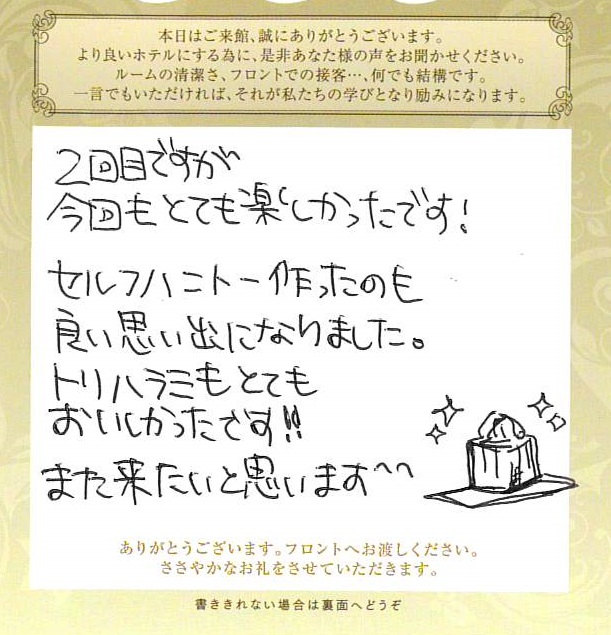 本日はご来館、誠にありがとうございます。
より良いホテルにする為に、是非あなた様の声をお聞かせください。
ルームの清潔さ、フロントでの接客…、何でも結構です。
一言でもいただければ、それが私たちの学びとなり励みになります。
2回目ですが
今回もとても楽しかったです!
セルフハニトー作ったのも
良い思い出になりました。
トリハラミもとても
おいしかったです!!
また来たいと思います^^
ありがとうございます。フロントへお渡しください。
ささやかなお礼をさせていただきます。
書ききれない場合は裏面へどうぞ